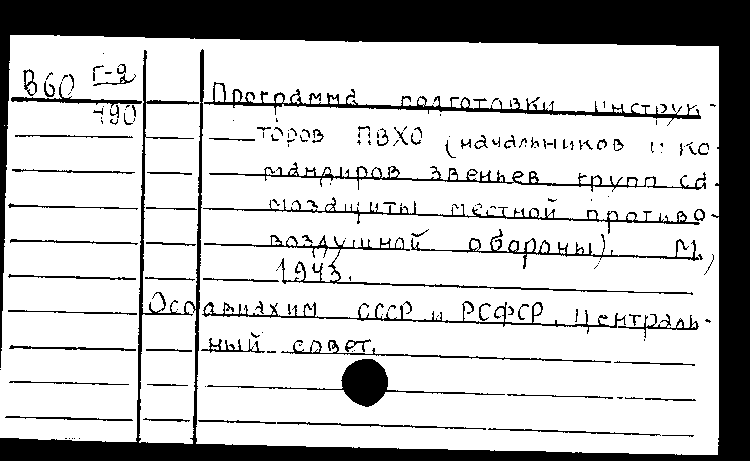 В60 Г-2
490
Программа подготовки инструк-
торов ПВХО (начальников и ко-
мандиров звеньев групп са-
мозащиты местной противо-
воздушной обороны). М.,
1943.
Осоавиахим СССР и РСФСР. Централь-
ный совет.